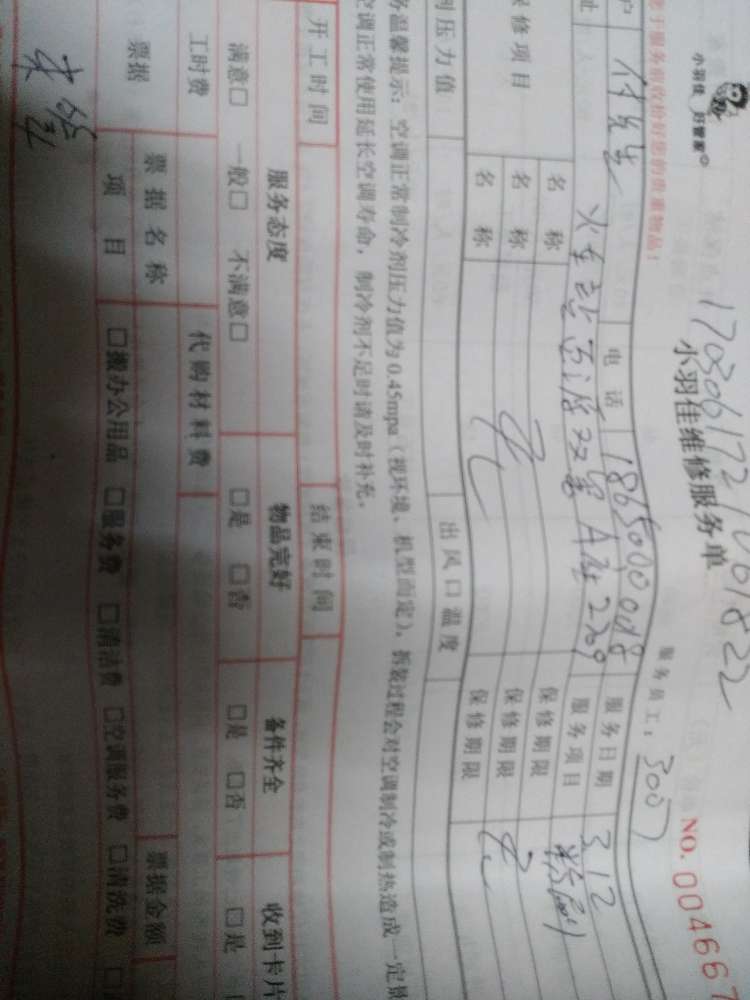 小羽佳 好管家
17030617210101822
小羽佳维修服务单
NO. 004667
您于服务前收拾好您的贵重物品!
服务员工: 3007
户 付先生 电话 服务日期 3.12
址 A座2709 服务项目
保修项目 名称 保修期限
名称 保修期限
名称 无 保修期限 无
剂压力值 出风口温度
务温馨提示: 空调正常制冷剂压力值为0.45mpa (视环境、机型而定), 拆装过程会对空调制冷或制热造成一定
空调正常使用延长空调寿命, 制冷剂不足时请及时补充。
开工时间 结束时间
服务态度 物品完好 备件齐全 收到卡片
满意□ 一般□ 不满意□ □是 □否 □是 □否 □是
工时费 代购材料费
票据 票据名称 票据金额
项目 □搬办公用品 □服务费 □清洁费 □空调服务费 □清洗费